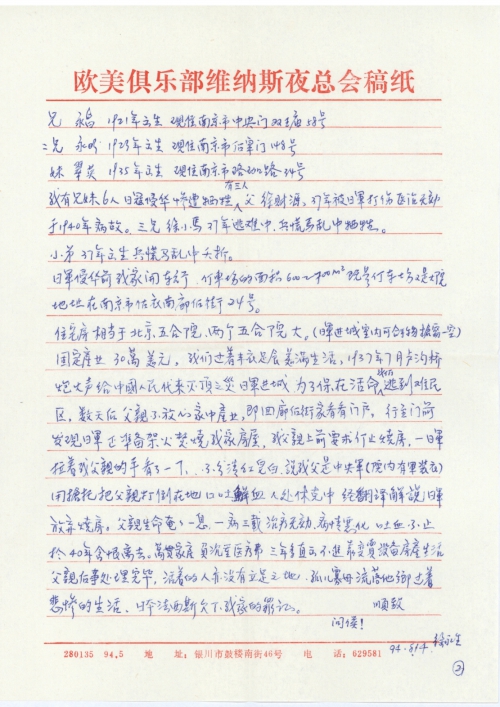 欧美俱乐部维纳斯夜总会稿纸
兄 永昌 1921年出生 现住南京市中央门
二兄 永明 1923年出生 现住南京市后宰门148号
妹 翠英 1935年出生 现住南京市路34号
我有兄妹6人 日寇侵华惨遭牺牲有三人 父 徐财源, 37年被日军打伤医治无效
于1940年病故。三兄 徐小马 37年逃难中, 兵慌马乱中牺牲。
小弟 37年出生 兵慌马乱中夭折。
日军侵华前我家开车行, 停车场的面积600~700m² 现是停车场又是大院
地址在南京市估衣廊后街24号。
住宅房相当于北京五合院, 两个五合院大。(日军进城室内可合物被
固定产业 30万美元, 我们过着丰衣足食美满生活, 1937年7月卢沟桥
炮火声给中国人民代来灭顶之灾 日军进城 为了保存活命我们逃到难民
区, 数天后父亲不放心家中产业, 即回廊后街家看看门户, 行至门前
发现日军正准备架火焚烧我家房屋, 我父亲上前要求停止烧房, 一日军
拉着我父亲的手看了一下, 不分清红皂白, 说我父是中央军(院内有军装衣)
用枪托把父亲打倒在地口吐鲜血 人处休克中 经翻译解说, 日军
放弃烧房。父亲生命奄奄一息, 一病三载 治疗无効, 病情恶化 吐血不止
於40年含恨离去。万贯家产 负沉重医疗费 三年多直出不进 靠变卖设备房产生活
父亲后事处理完毕, 活着的人亦没有立足之地, 孤儿寡母流落他乡过着
悲惨的生活, 日本法西斯欠下我家的罪证。 顺致
问候!
徐永生
280135 94.5 地 址: 银川市鼓楼南街46号 电 话: 629581 94.
②